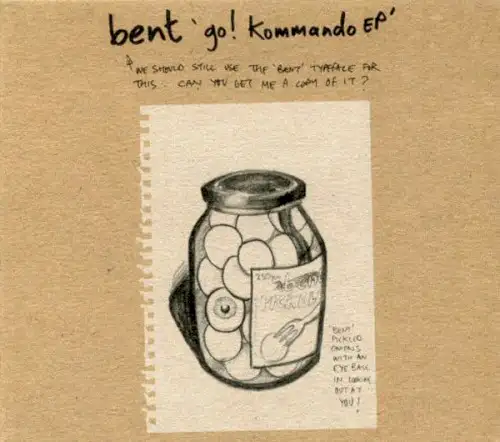 bent 'go! Kommando EP'
WE SHOULD STILL USE THE 'BENT' TYPEFACE FOR
THIS. CAN YOU GET ME A COPY OF IT?
250gm
'BENT'
PICKLED
ONIONS
WITH AN
EYE BALL
IN
OUT AT
YOU!